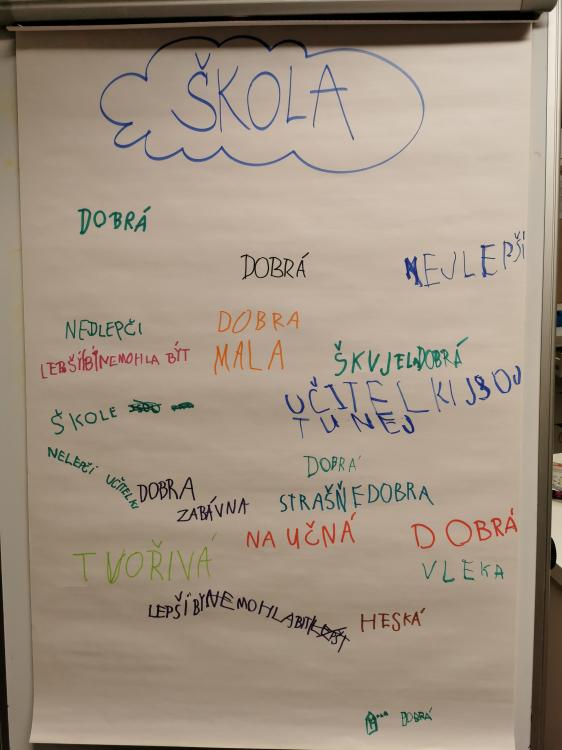 ŠKOLA
DOBRÁ
DOBRÁ
NEJLEPŠÍ
NEDLEPČI
DOBRA
LEBŠÍBÍNEMOHLA BÝT
MALA
ŠKVJELADOBRÁ
UČITELKI JSOU
TUNEJ
ŠKOLE
NELEPČI UČITELKI
DOBRÁ
DOBRA
ZABÁVNA
STRAŠŇEDOBRA
NAUČNÁ
DOBRÁ
TVOŘIVÁ
VLEKA
LEPŠÍBÝNEMOHLABIT
HESKÁ
DOBRÁ